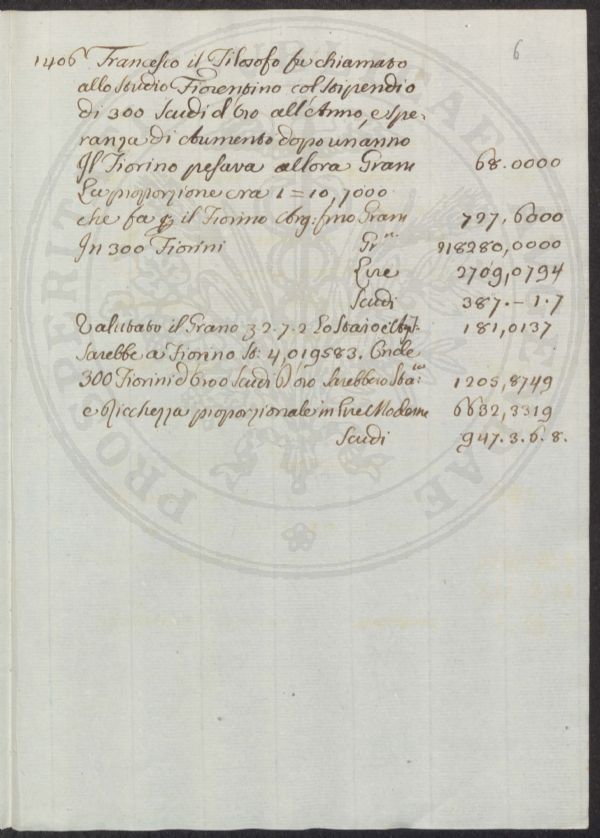 6
1406 Francesco il Filosofo fu chiamato
allo Studio Fiorentino col stipendio
di 300 Scudi d'Oro all'Anno, e spe-
ranza di Aumento dopo un anno
Il Fiorino pesava allora Grani 68.0000
La proporzione era 1 = 10,7000
che fa il Fiorino Arg: fino Grani 727,6000
In 300 Fiorini Gr.ni 218280,0000
Lire 2709,0794
Scudi 387.-1.7
Valutato il Grano 32.7.2 Lo Staio 181,0137
Sarebbe a Fiorino St: 4,019583. Onde
300 Fiorini d'Oro o Scudi d'Oro Sarebbero Sta: 1205,8749
e Ricchezza proporzionale in Lire Moderne 6632,3319
Scudi 947.3.6.8.
PROSPERITATI